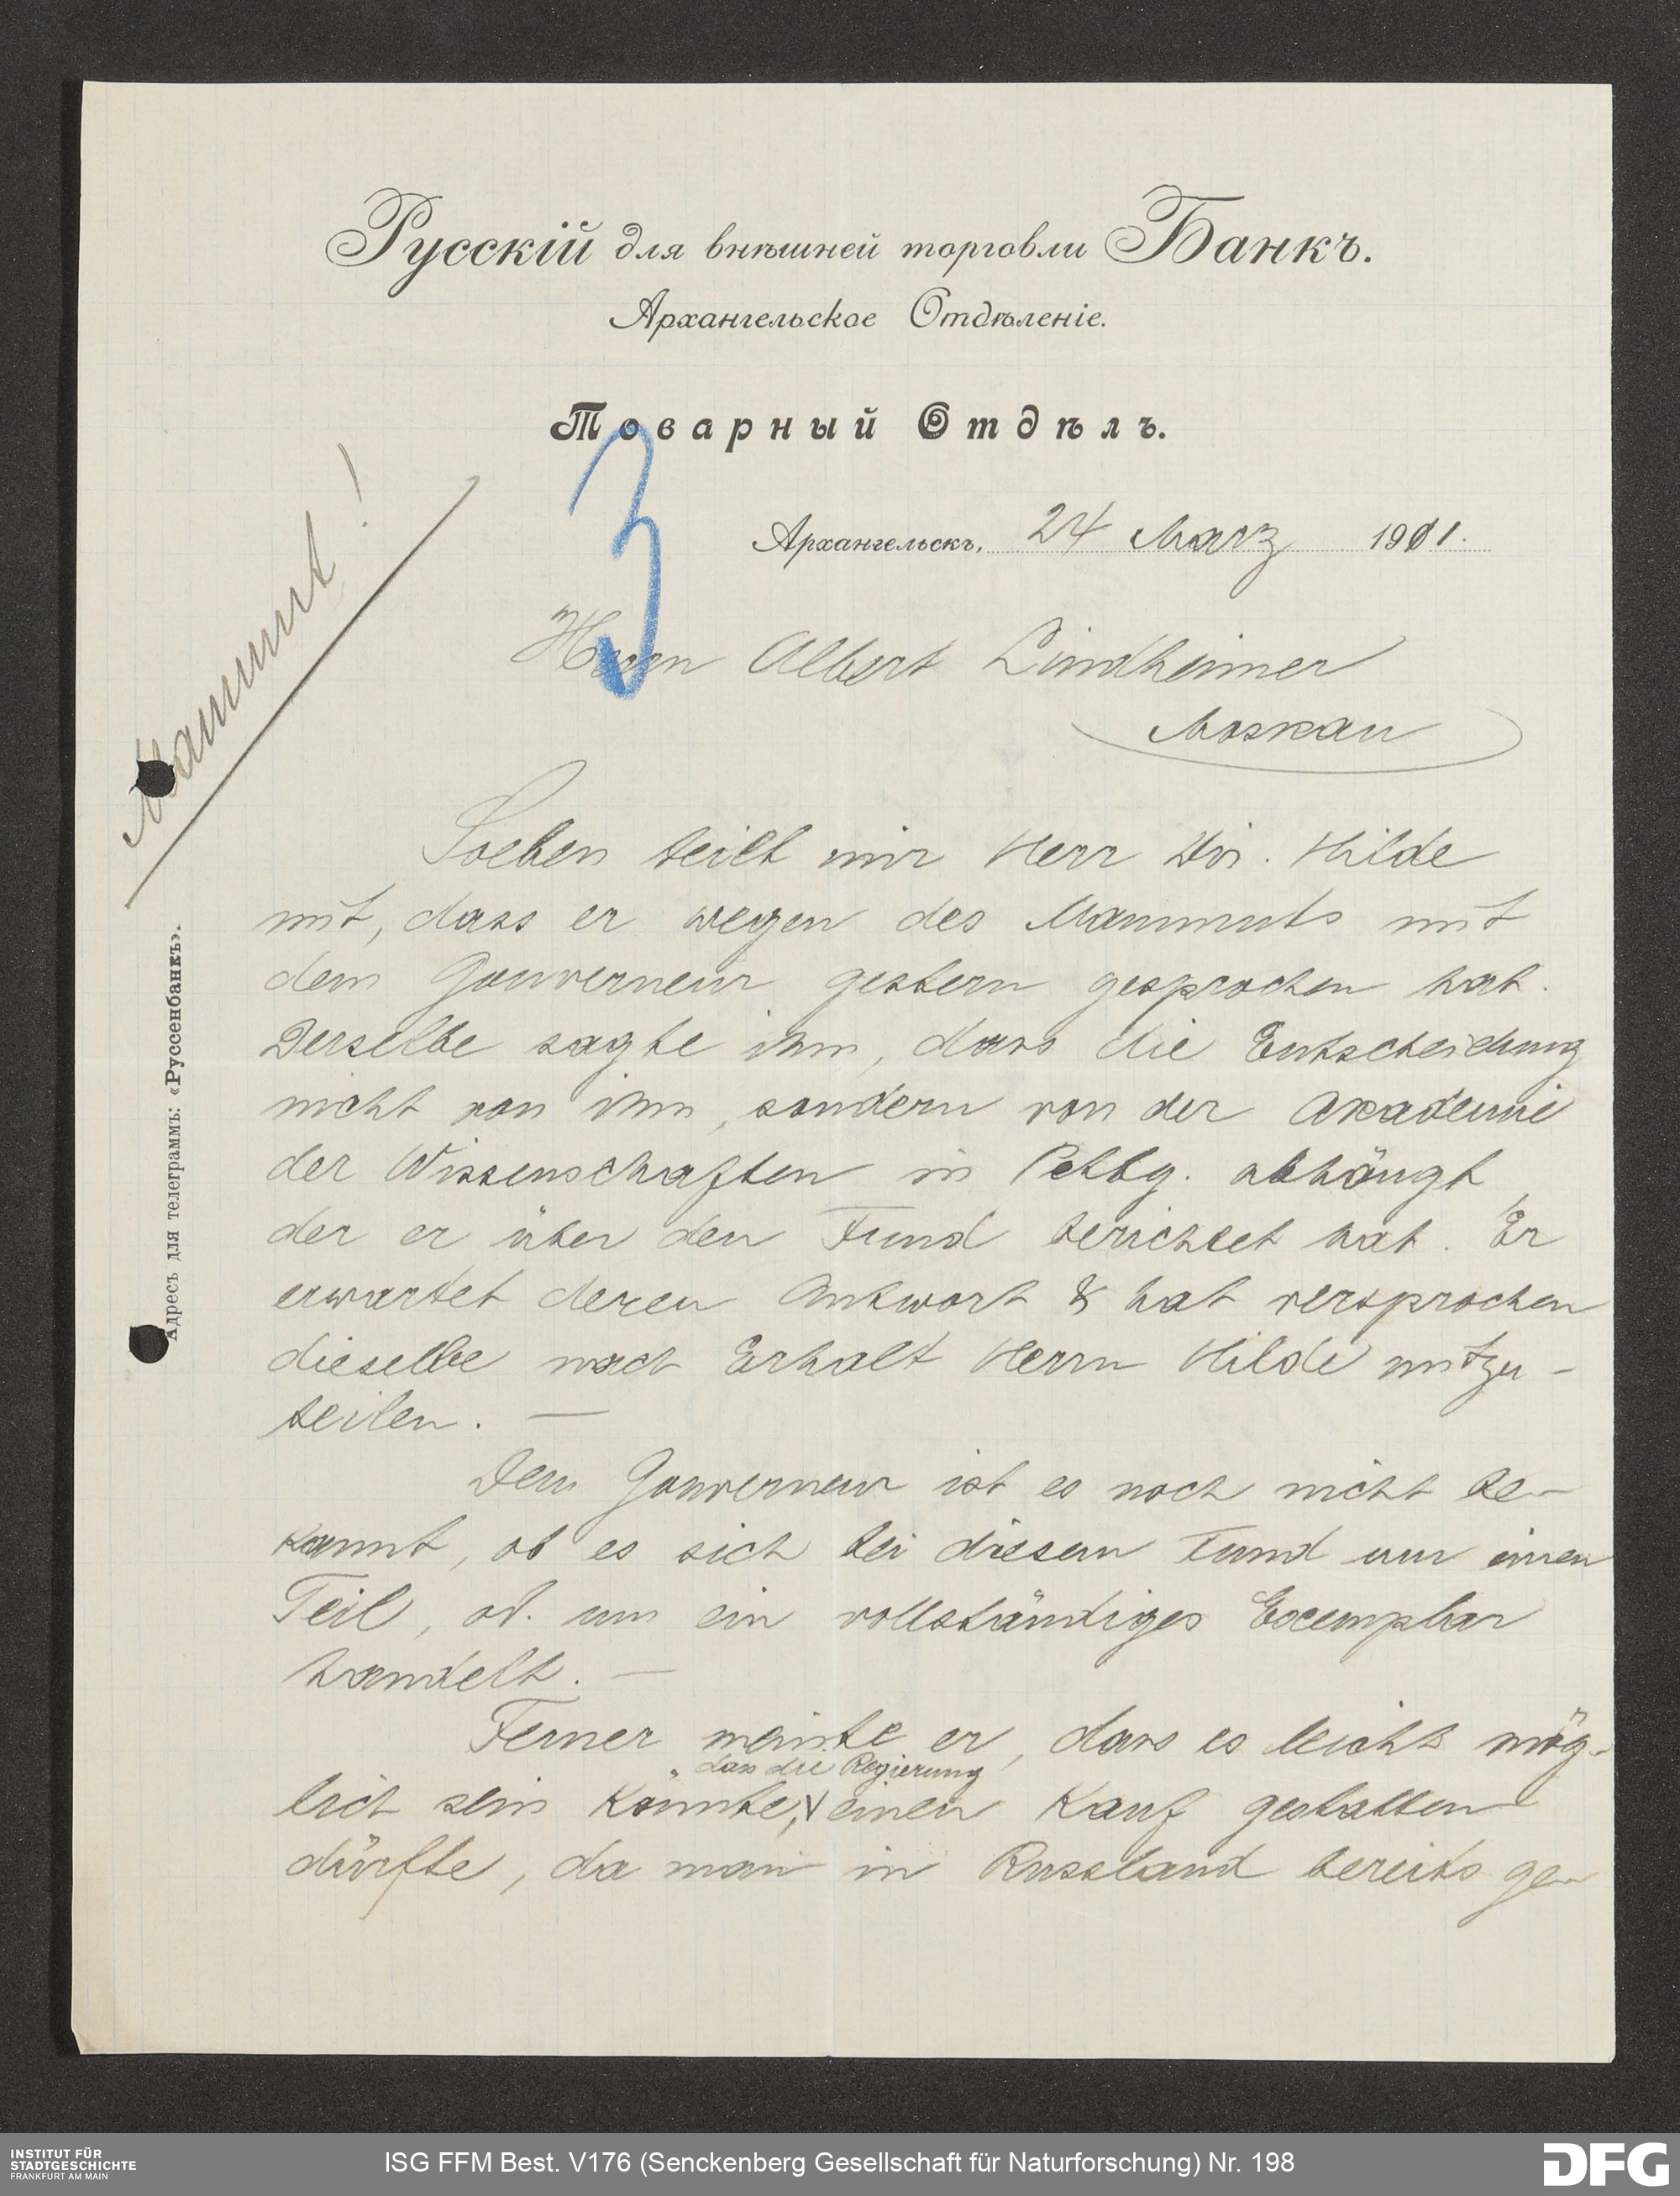 Русскій для внѣшней торговли Банкъ.
Архангельское Отдѣленіе.
Товарный Отдѣлъ.
3
Архангельскъ, 24 März 1911.
Mammut!
Herrn Albert Lindheimer
Moskau
Soeben teilt mir Herr Dir. Hilde
mit, dass er wegen des Mammuts mit
dem Gouverneur gestern gesprochen hat.
Derselbe sagte ihm, dass die Entscheidung
nicht von ihm, sondern von der Akademie
der Wissenschaften in Petbg. abhängt,
der er über den Fund berichtet hat. Er
erwartet deren Antwort & hat versprochen
dieselbe nach Erhalt Herrn Hilde mitzu-
teilen. —
Dem Gouverneur ist es noch nicht be-
kannt, ob es sich bei diesem Fund um einen
Teil, od. um ein vollständiges Exemplar
handelt. —
Ferner meinte er, dass es leicht mög-
„ dass die Regierung
lich sein könnte, einen Kauf gestatten
dürfte, da man in Russland bereits ge-
Адресъ для телеграммъ: «Руссенбанкъ».
INSTITUT FÜR
STADTGESCHICHTE
FRANKFURT AM MAIN
ISG FFM Best. V176 (Senckenberg Gesellschaft für Naturforschung) Nr. 198
DFG